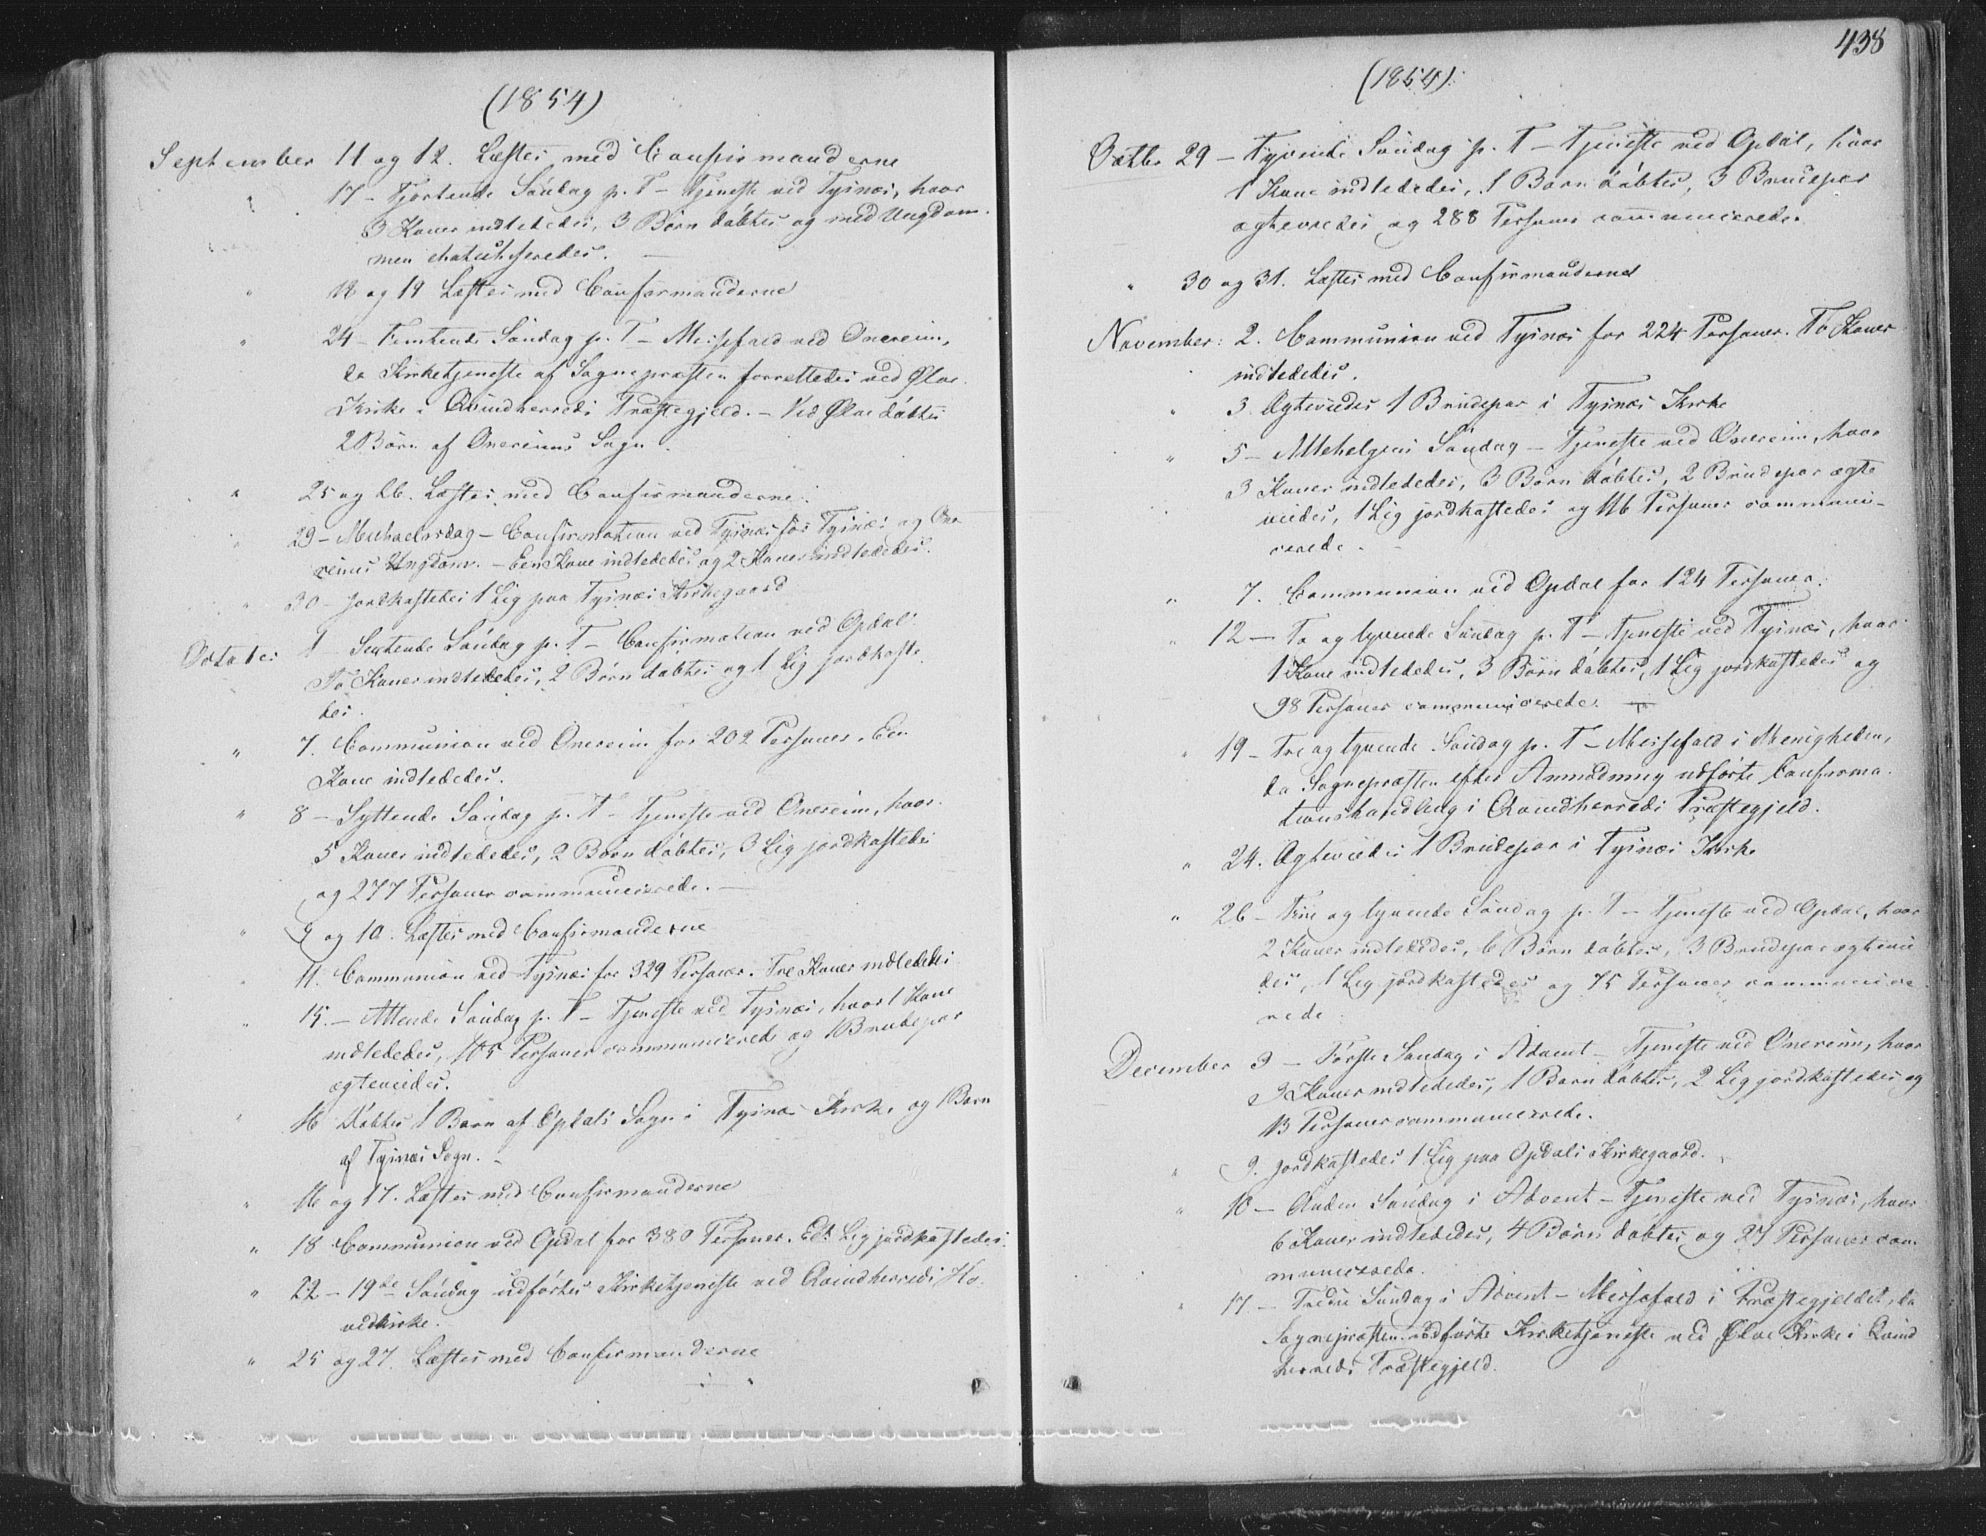 (1854)
September 11 og 12. Læstes med Confirmanderne
" 17 - Fjortende Søndag p. T - Tjeneste ved Tysnæs, hvor
3 Koner indlededes, 3 Børn døbtes og med Ungdom-
men chatechiseredes. —
" 18 og 19 Læstes med Confirmanderne
" 24 - Femtende Søndag p. T - Messefald ved Onereim,
da Kirketjeneste af Sognepræsten forrettedes ved Ølve
Kirke i Qvindherreds Præstegjeld. - Ved Ølve døbtes
2 Børn af Onereims Sogn.
" 25 og 26. Læstes med Confirmanderne.
" 29 - Michaelsdag - Confirmation ved Tysnæs for Tysnæs og One
reims Ungdom. - Een Kone indlededes og 2 Koner indlededes.
" 30 - Jordkastedes 1 Lig paa Tysnæs Kirkegaard
October 1 - Sextende Søndag p. T - Confirmation ved Opdal.
To Koner indlededes, 2 Børn døbtes og 1 Lig jordkaste
des.
" 7. Communion ved Onereim for 202 Personer. Een
Kone indlededes.
" 8 - Syttende Søndag p. T - Tjeneste ved Onereim, hvor
5 Koner indlededes, 2 Børn døbtes, 3 Lig jordkastedes
og 277 Personer communicerede. —
" 9 og 10. Læstes med Confirmanderne
" 11. Communion ved Tysnæs for 329 Personer. Tre Koner indlededes
" 15. - Attende Søndag p. T - Tjeneste ved Tysnæs, hvor 1 Kone
indlededes, 105 Personer communicerede og 1 Brudepar
ægteviedes.
" 16 Døbtes 1 Barn af Opdals Sogn i Tysnæs Kirke og 1 Barn
af Tysnæs Sogn. -
" 16 og 17. Læstes med Confirmanderne
" 18 Communion ved Opdal for 380 Personer. Et Lig jordkastedes.
" 22 - 19de Søndag udførtes Kirketjeneste ved Qvindherreds Ho-
vedkirke.
" 25 og 27. Læstes med Confirmanderne
438
(1854).
Octbr 29 - Tyvende Søndag p. T - Tjeneste ved Opdal, hvor
1 Kone indlededes, 1 Barn døbtes, 3 Brudepar
ægteviedes og 288 Personer communicerede.
" 30 og 31. Læstes med Confirmanderne
November: 2. Communion ved Tysnæs for 224 Personer. To Koner
indlededes.
" 3. Ægteviedes 1 Brudepar i Tysnæs Kirke
" 5 - Allehelgens Søndag - Tjeneste ved Onereim, hvor
3 Koner indlededes, 3 Børn døbtes, 2 Brudepar ægte
viedes, 1 Lig jordkastedes og 116 Personer communi-
cerede. -
" 7. Communion ved Opdal for 124 Personer.
" 12 - To og tyvende Søndag p. T - Tjeneste ved Tysnæs, hvor
1 Kone indlededes, 3 Børn døbtes, 1 Lig jordkastedes og
98 Personer communicerede.
" 19 - Tre og tyvende Søndag p. T - Messefald i Menigheden,
da Sognepræsten efter Anmodning udførte Confirma-
tionshandling i Qvindherreds Præstegjeld.
" 24. Ægteviedes 1 Brudepar i Tysnæs Kirke
" 26 - Fire og tyvende Søndag p. T - Tjeneste ved Opdal, hvor
2 Koner indlededes, 6 Børn døbtes, 3 Brudepar ægtevie
des, 1 Lig jordkastedes og 75 Personer communice
rede.
December 3 - Første Søndag i Advent - Tjeneste ved Onereim, hvor
2 Koner indlededes, 1 Barn døbtes, 2 Lig jordkastedes og
13 Personer communicerede.
" 9. Jordkastedes 1 Lig paa Opdals Kirkegaard.
" 10 - Anden Søndag i Advent - Tjeneste ved Tysnæs, hvor
6 Koner indlededes, 4 Børn døbtes og 27 Personer com
municerede.
" 17 - Tredie Søndag i Advent - Messefald i Præstegjeldet, da
Sognepræsten udførte Kirketjeneste ved Ølve Kirke i Qvind
herreds Præstegjeld.